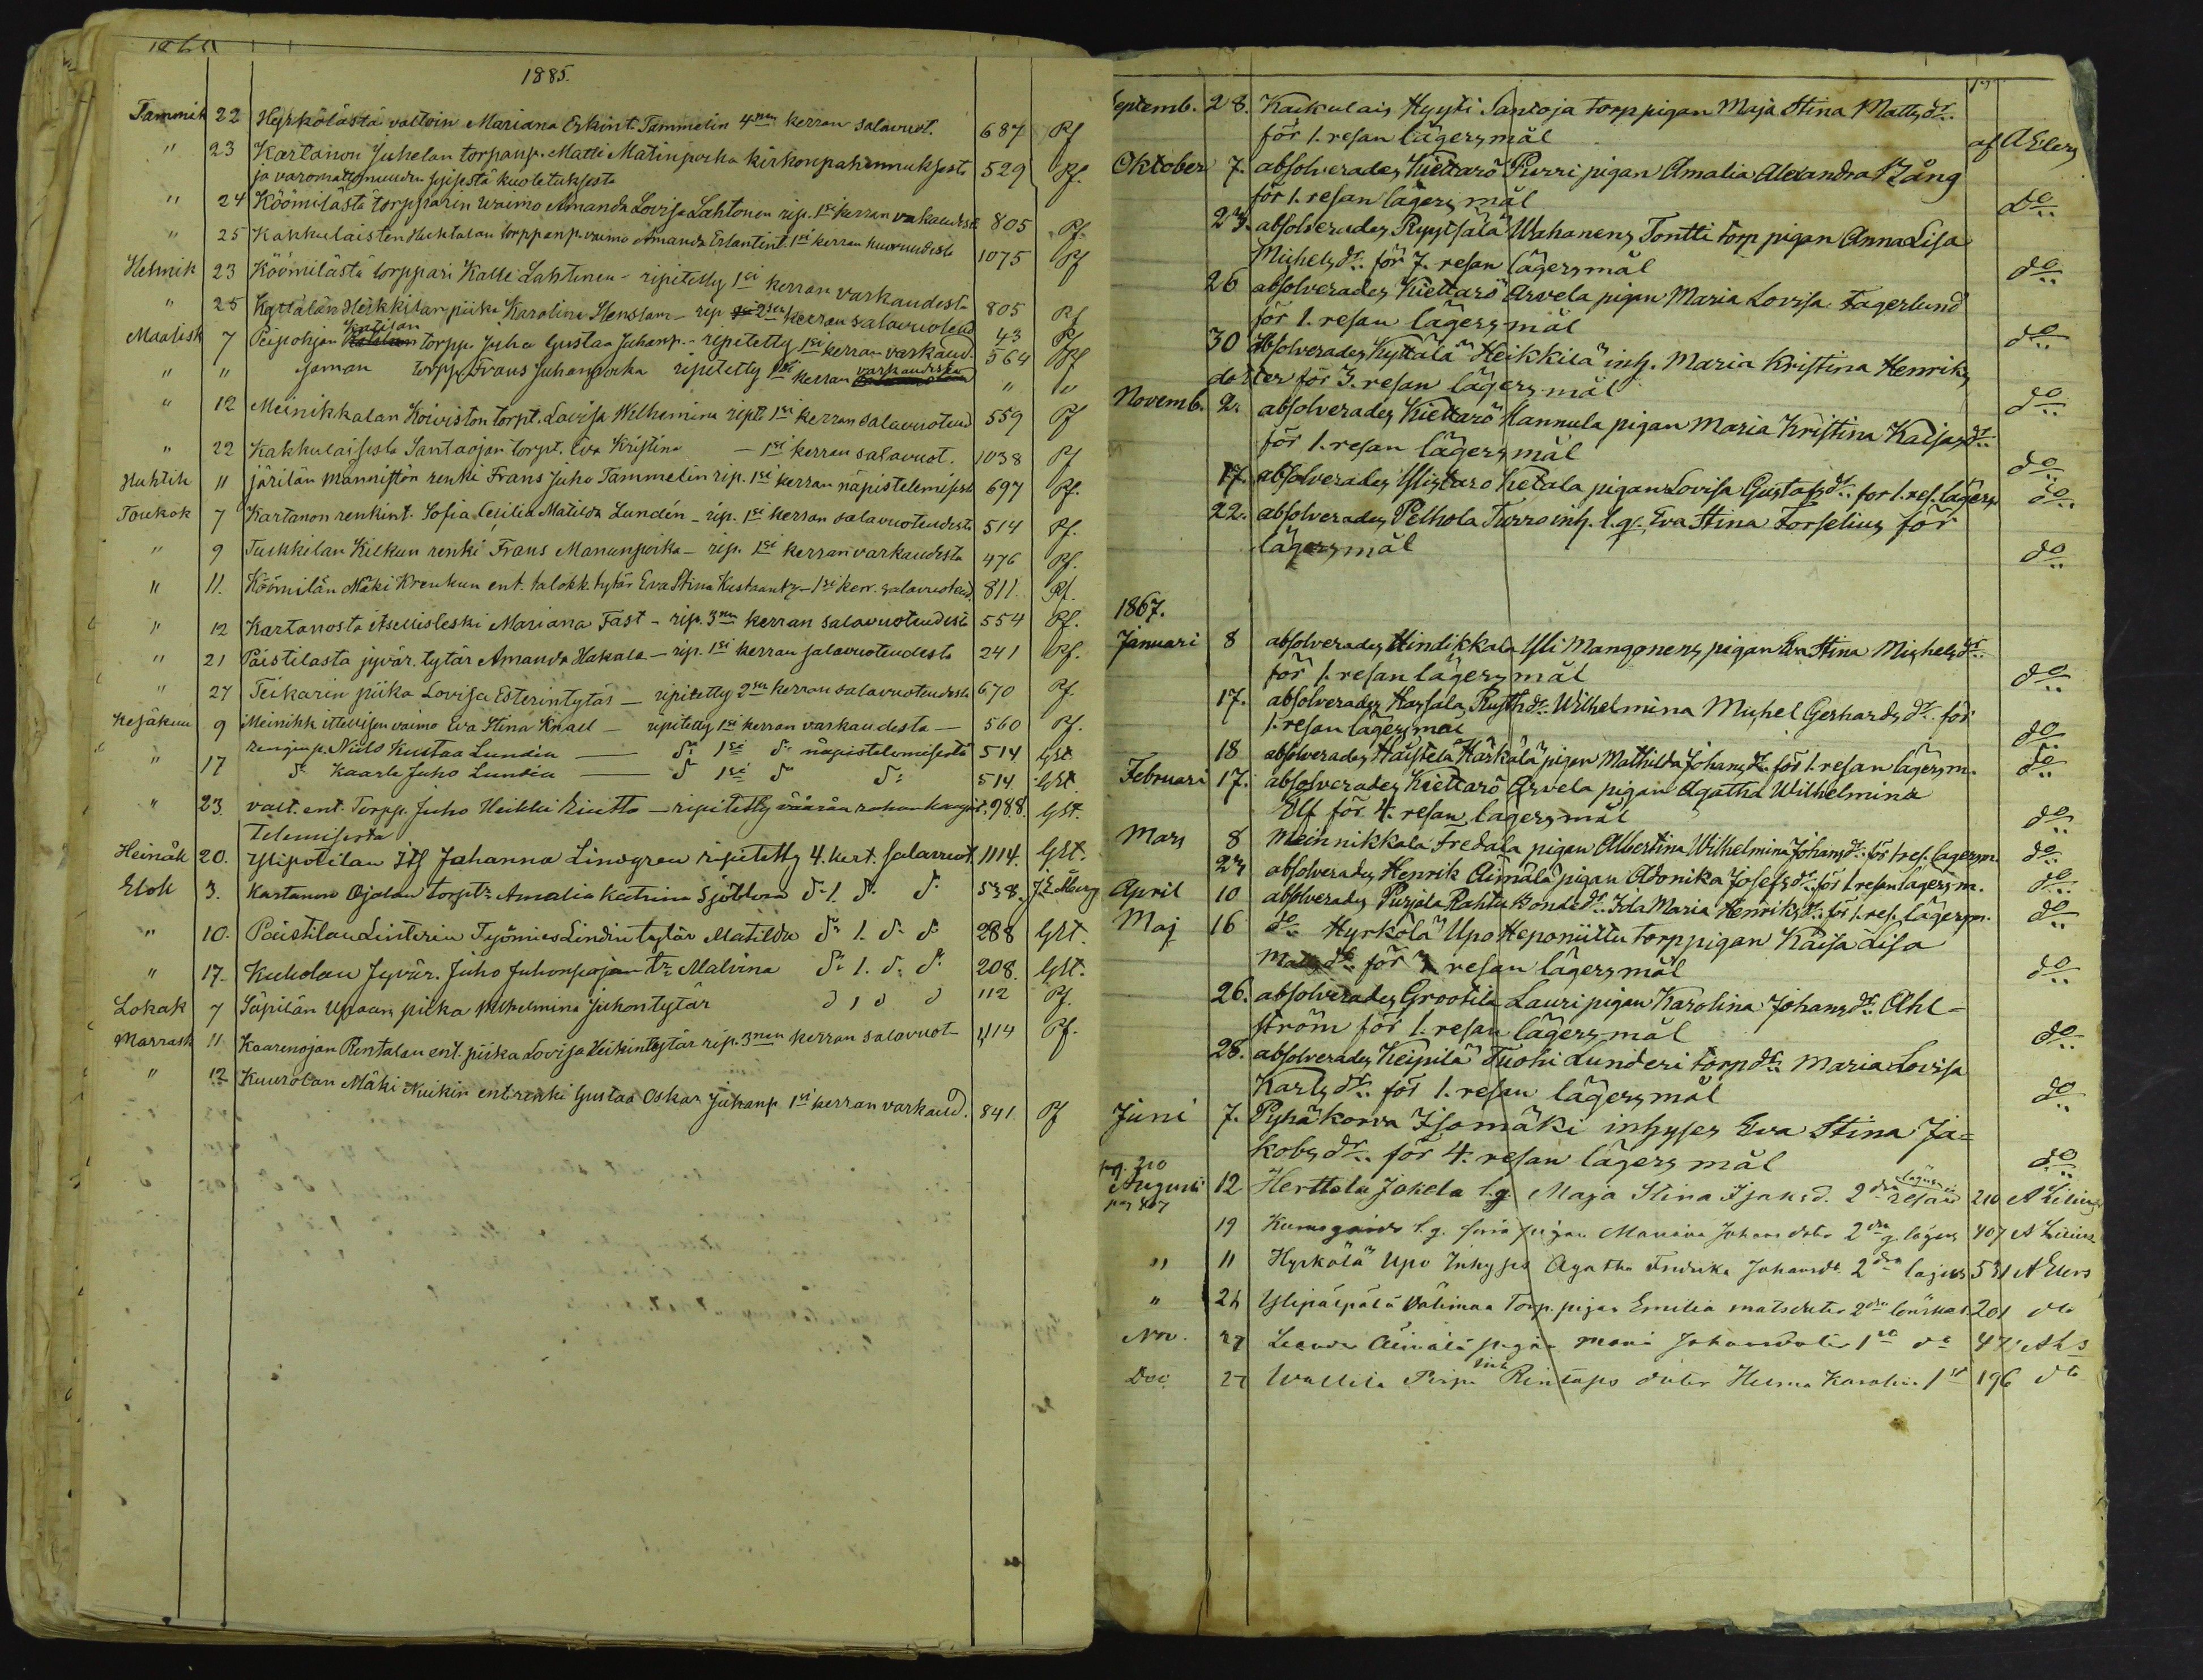 1885.
Tammik 22 Hyrkölästä valtoin Mariana Erkint. Tammelin 4nen kerran salavuot. 687 Pf
" 23 Kartanon Juhelan torpanp. Matti Matinpoika kirkonpahennuksesta 529 Pf.
ja varomattomuuden kuoletuksesta
" 24 Köömilästä torpparin waimo Amanda Lovisa Lahtonen rip. 1si kerran varkaudest 805 Pf.
" 25 Kakkulaisten Huhtalan torppanp. vaimo Amanda Erlantint. 1si kerran huoruudesta 1075 Pf
Helmik 23 Köömilästä torppari Kalle Lahtinen - ripitetty 1si kerran varkaudesta 805 Pf
" 25 Kyttälän Heikkilan piika Karolina Henslam - rip 2sen kerran salavuoteud 43 Pf
Maalisk 7 Peipohjan torpp. Juha Gustaa Juhanp. - ripitetty 1si kerran varkaud. 564 Pf
" " saman torpp. Frans Juhanpoika ripitetty 1si kerran varkaudesta " "
" 12 Meinikkalan Koiviston torpt. Lovisa Wilhemina ripit 1si kerran salavuoteud 559 Pf
" 22 Kakkulaisista Santaojan torpt. Eva Kristina — 1si kerran salavuot. 1038 Pf
Huhtik 11 järilän Männistön renki Frans Juho Tammelin rip. 1si kerran näpistelemisest 697 Pf.
Toukok 7 Kartanon renkint. Sofia Cesilia Matilda Lundén - rip. 1si kerran salavuoteudesta 514 Pf.
" 9 Tuckkilan Kilkun renki Frans Manunpoika - rip. 1si kerran varkaudesta 476 Pf.
" 11. Köömilän Mäki Krenkun ent. talokk. tytär Eva Stina Kustaanty - 1si kerr. salavuoteud. 811. Pf.
" 12 Kartanosta itsellisleski Mariana Fast - rip. 3nen kerran salavuoteudest 554 Pf.
" 21 Päistilasta jyvär. tytär Amanda Hakala - rip. 1si kerran salavuoteudesta 241 Pf.
" 27 Teikarin piika Lovisa Esterintytär - ripitetty 2sen kerran salavuoteudesta 670 Pf.
Kesäkuu 9 Meinikk ittellisen vaimo Eva Stina Knall - ripitetty 1si kerran varkaudesta - 560 Pf.
" 17 renginp. Nills Kustaa Lundén — do 1si do näpistelemisestä 514 GSt
do Kaarle Juho Lundén — do 1si do do 514 GSt.
" 23. valt. ent. Torpp. Juho Heikki — ripitetty väärän rahan 988. GSt.
telemisesta
Heinäk 20. Ylipotilan Its Johanna Lindgren ripitetty 4. kert. salavuot. 1114. GSt.
Elok 3. Kartanon Ojalan torptr Amalia Katrina Sjöblom do 1. do do 538.
" 10. Päistilan Linterin Työmies Lindin tytär Matilda do 1. do do 288 GSt.
" 17. Kukolan Jyvär. Juho Juhonpojan tr Malvina do 1. do do 208. GSt.
Lokak 7 Säpilän Upaan piika Wilhelmina Juhontytär do 1 do do 112 Pf.
Marrask 11 Kaarenojan Rintalan ent. piika Lovisa Heikintytär rip. 3nen kerran salavuot 1114 Pf.
" 12 Kuurolan Mäki Nuikin ent. renki Gustaa Oskar Juhanp 1si kerran varkaud. 841. Pf
Septemb. 28. Kackulais Hyyti Santoja torppigan Maja Stina Mattsdr.
för 1. resan lägersmål af AElers
Oktober 7. absolverades Kiettarö Purri pigan Amalia Alexandra Zång
för 1. resan lägersmål do
23. absolverades Ryysälä Wahanens Tontti torp pigan Anna Lisa
Mishelsdr. för 7. resan lägersmål do
26 absolverades Kiettarö Arvela pigan Maria Lovisa Fagerlund
för 1. resan lägersmål do
30 absolverades Kyttälä Heikkilä inh. Maria Kristina Henriks
dotter för 3. resan lägersmål do
Novemb. 2. absolverades Kiettarö Hannula pigan Maria Kristina Kaisasdr.
för 1. resan lägersmål do
17. absolverades Ylistaro Kietala pigan Lovisa Gustafsdr. för 1. res. lägers do
22. absolverades Pelhola Turro inh. l.q. Eva Stina Forselius för
lägersmål do
1867.
Januari 8 absolverades Hindikkala Yli Mangonens pigan Eva Stina Mishelsdr.
för 1. resan lägersmål do
17. absolverades Haysala Rusthdr. Wilhelmina Mishel Gerhardsdr. för
1. resan lägersmål do
18 absolverades Haistela Härkälä pigan Mathilda Johansd. för 1. resan lägersm. do
Februari 17. absolverades Kiettarö Arvela pigan Agatha Wilhelmina
Elf för 4. resan lägersmål do
Mars 8 Meinnikkala Fredala pigan Albertina Wilhelmina Johansdr. för 1 res. lägersm. do
23 absolverades Henrik Äimälä pigan Adonika Josefsdr. för 1 resan lägersm. do
April 10 absolverades Purjala Rahtu Bondedr. Ida Maria Henriksdr. för 1. res. lägersm. do
Maj 16 do Hyrkölä Upo Heponiittu torppigan Kaisa Lisa
Mattsdr. för resan lägersmål do
26. absolverades Grootila Lauri pigan Karolina Johansdr. Ahl-
ström för 1. resan lägersmål do
28. absolverades Keipilä Tuohi Lunderi torpdr. Maria Lovisa
Karlsdr. för 1. resan lägersmål do
Juni 7. Pyhäkorva Isomäki inhyses Eva Stina Ja-
kobsdr. för 4. resan lägersmål do
pag. 210
Augusti 12 Herttola Jokela l.q. Maja Stina Isaksd. 2dra resan 210 A Lilius
pag 407
19 l.q. pigan Mariana Johansdotr 2dra g. lägers 407 A Lilius
" 11 Hyrkölä Upo Inhyses Agatha Fredrika Johansdr 2dra lägers 531 AElers
" 24 Ylipäipälä Välimaa Torp. pigan Emilia Matsdoter 2dra 201 do
Nov. 27 Äimälä pigan Maria Johansdoter 1sta do 471
Dec 27 Wallila Hilma Karolin. 1st 196 do